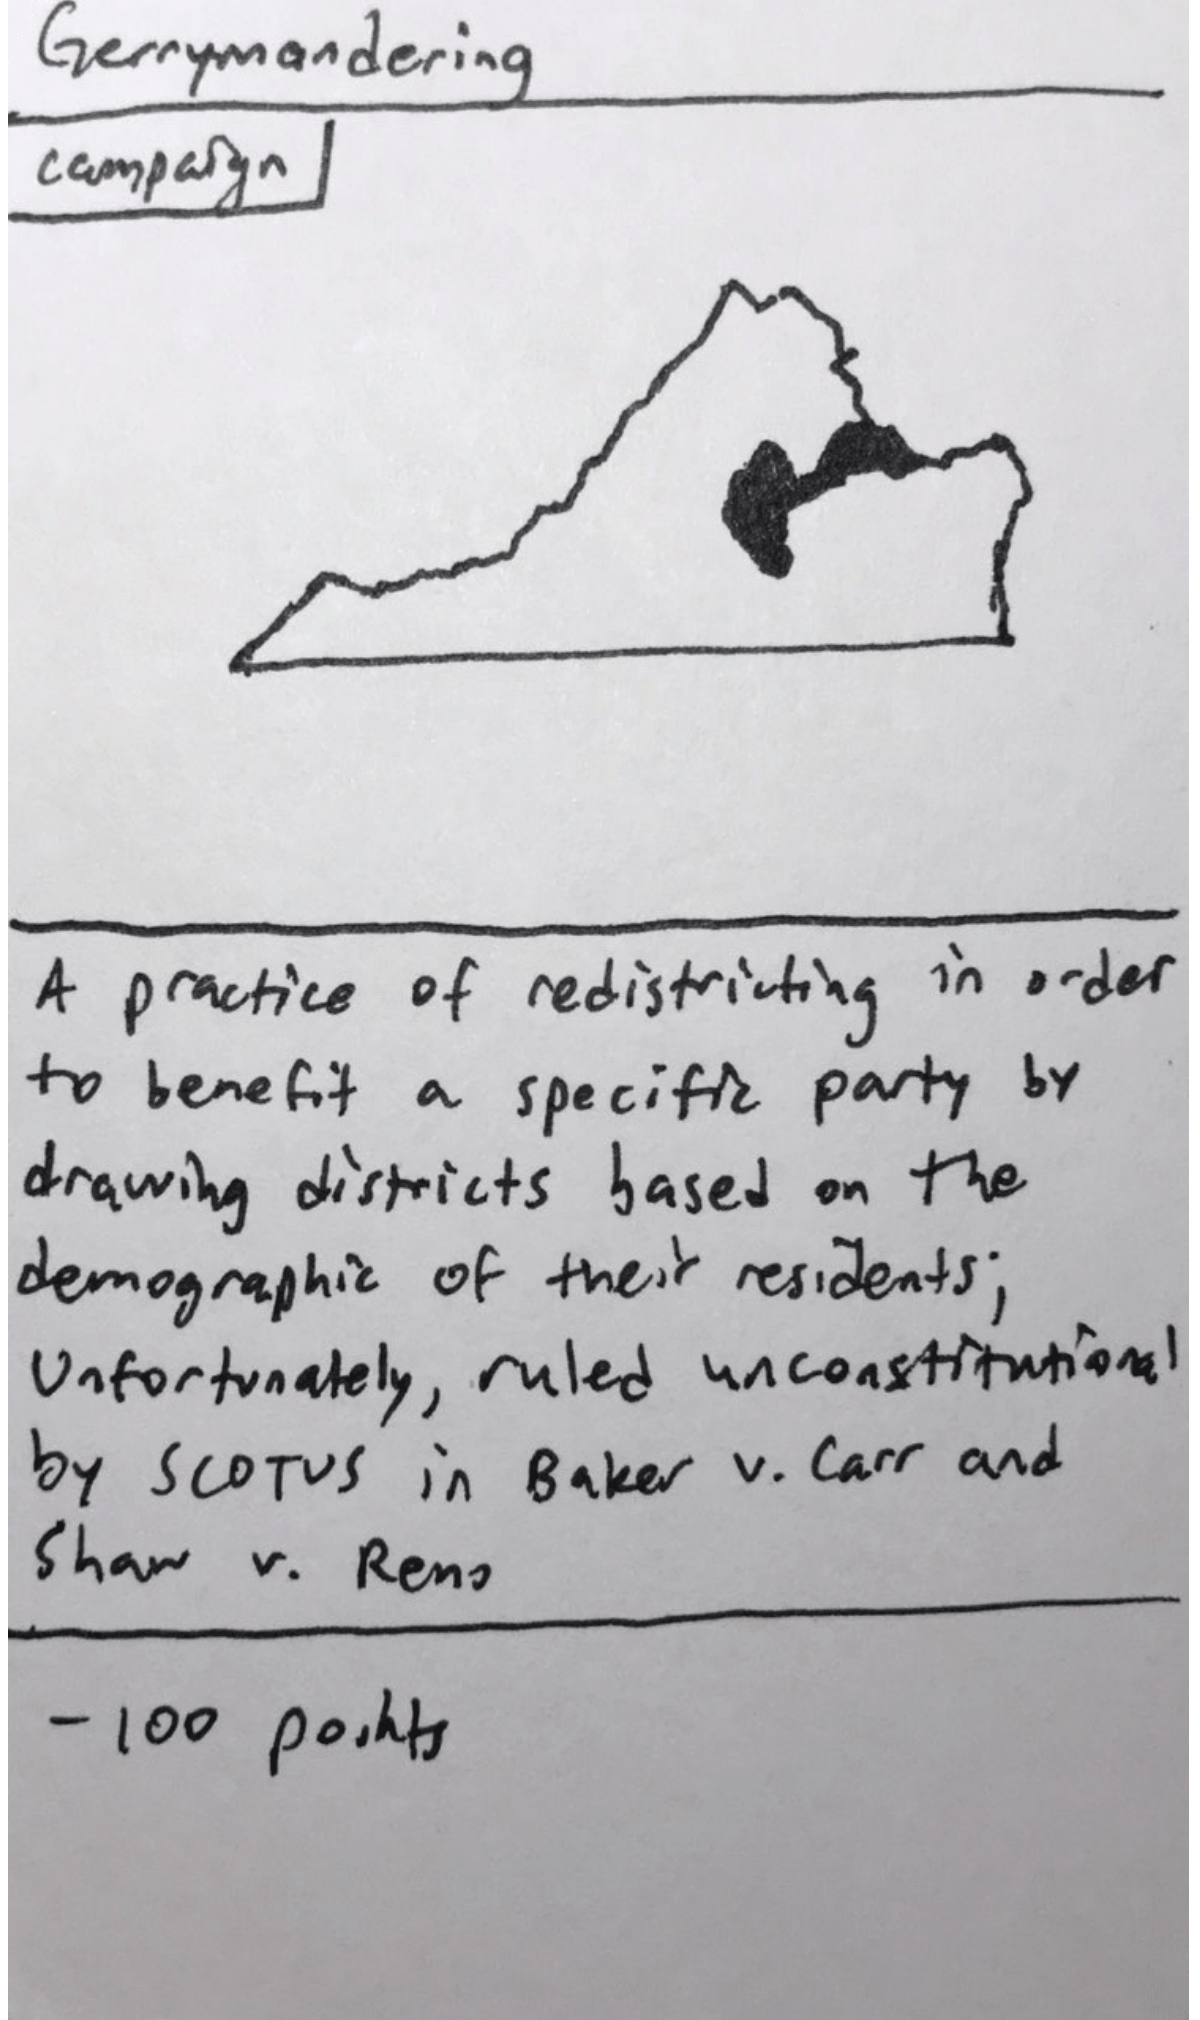 Gerrymandering
campaign
A practice of redistricting in order
to benefit a specific party by
drawing districts based on the
demographic of their residents;
Unfortunately, ruled unconstitutional
by SCOTUS in Baker v. Carr and
Shaw v. Reno
- 100 points